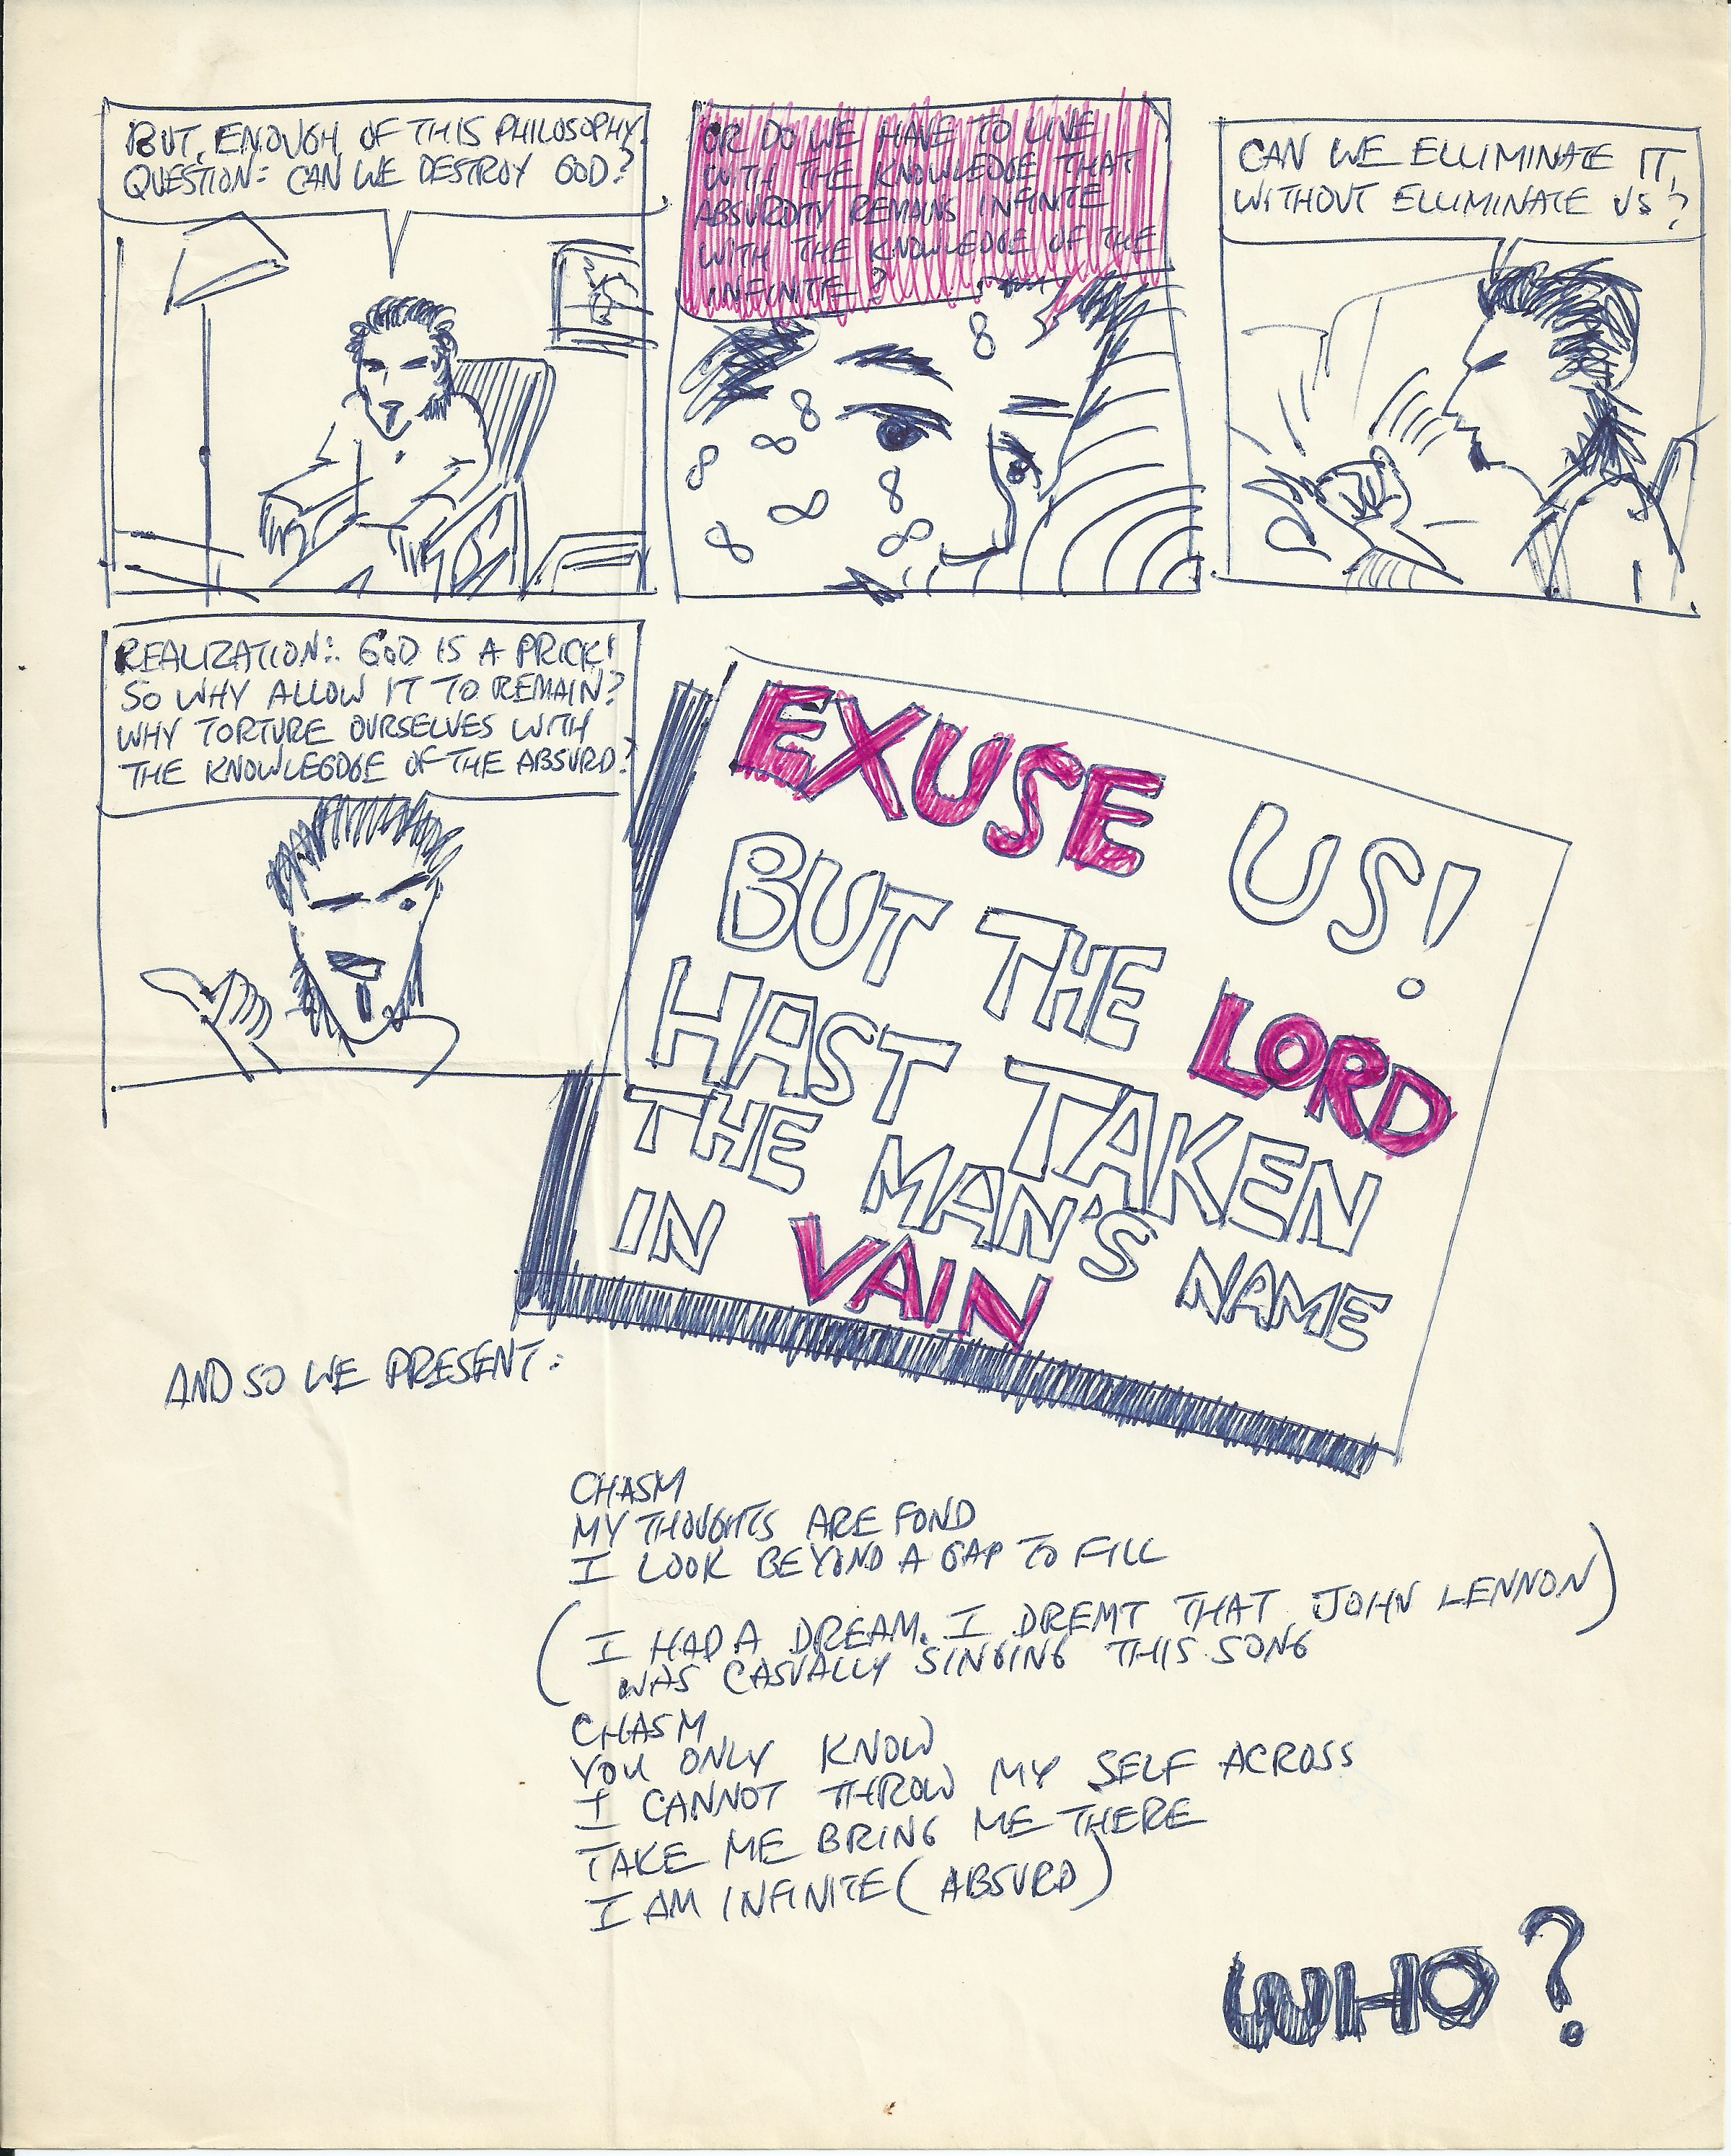 BUT, ENOUGH OF THIS PHILOSOPHY.
QUESTION: CAN WE DESTROY GOD?
OR DO WE HAVE TO LIVE
WITH THE KNOWLEDGE THAT
ABSURDITY REMAINS INFINITE
WITH THE KNOWLEDGE OF THE
INFINITE?
CAN WE ELLIMINATE IT,
WITHOUT ELLIMINATE US?
8
8
∞
8
8
∞
8
∞
REALIZATION: GOD IS A PRICK!
SO WHY ALLOW IT TO REMAIN?
WHY TORTURE OURSELVES WITH
THE KNOWLEGDGE OF THE ABSURD?
EXUSE US!
BUT THE LORD
HAST TAKEN
THE MAN'S NAME
IN VAIN
AND SO WE PRESENT:
CHASM
MY THOUGHTS ARE FOND
I LOOK BEYOND A GAP TO FILL
(I HAD A DREAM. I DREMT THAT JOHN LENNON)
WAS CASUALLY SINGING THIS SONG
CHASM
YOU ONLY KNOW
I CANNOT THROW MY SELF ACROSS
TAKE ME BRING ME THERE
I AM INFINITE (ABSURD)
WHO?